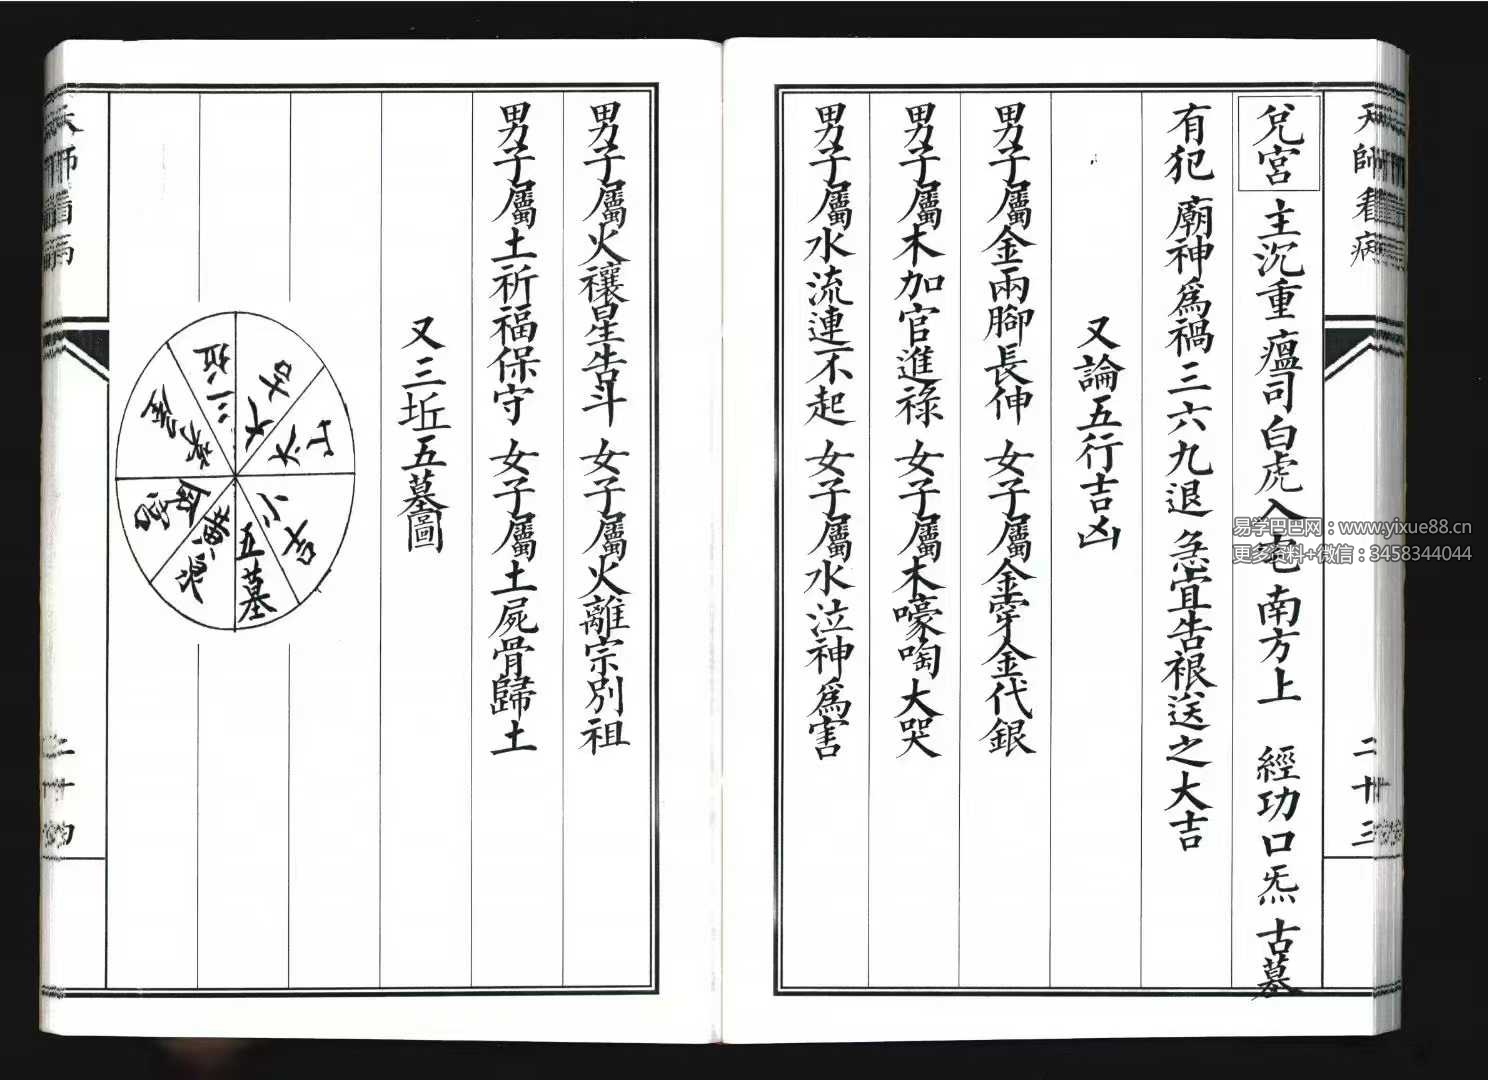 天師看病
二十三
兌宮 主沉重 瘟司白虎入宅 南方上 經功口炁 古墓
有犯 廟神為禍 三六九退 急宜告祓送之大吉
又論五行吉凶
男子屬金兩腳長伸 女子屬金穿金代銀
男子屬木加官進祿 女子屬木嚎啕大哭
男子屬水流連不起 女子屬水泣神為害
男子屬火禳星告斗 女子屬火離宗別祖
男子屬土祈福保守 女子屬土屍骨歸土
又三坵五墓圖
三坵
大吉
小吉
五墓
黃泉
天師看病
二十四
易学巴巴网：www.yixue88.cn
更多资料+微信：3458344044